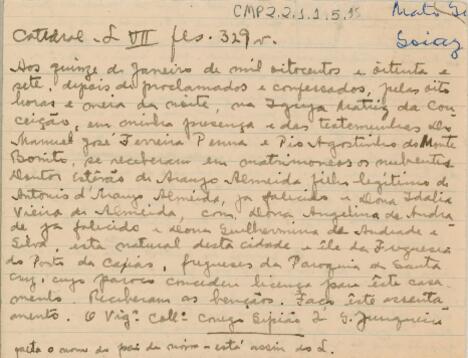 CMP 2.2.1.1.5.15
Mato G
Goiaz
Catedral. L VII fls. 329 v.
Aos quinze de Janeiro de mil oitocentos e oitenta e
sete, depois de proclamados e confessados, pelas oito
horas e meia da noite, na Igreja Matriz da Con-
ceição, em minha presença e das testemunhas Dr.
Manuel José Ferreira Penna e Pio Agostinho do Monte
Bonito, se receberam em matrimonio os nubentes
Doutor Estevão de Araujo Almeida, filho legítimo de
Antonio d'Araujo Almeida, ja falecido e Dona Idalia
Vieira de Almeida, com Dona Angelina de Andra-
de ja falecido e Dona Guilhermina de Andrade e
Silva, esta natural desta cidade e êle da Freguesia
do Porto da Capias, fregueses da Paroquia de Santa
Cruz, cujo paroco concedeu licença para êste casa-
mento. Receberam as bençãos. Faço êste assenta-
mento. O Vigº. Collº. Conego Sipião J. G. Junqueira
falta o nome do pai da noiva - está assim do L.